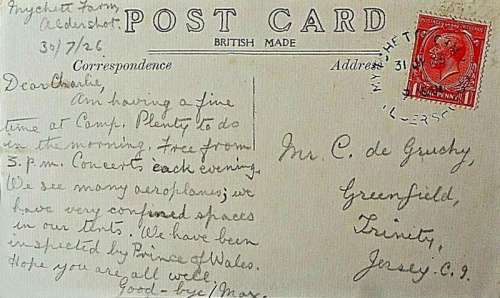 Mychett Farm
Aldershot.
30/7/26
POST CARD
BRITISH MADE
Correspondence
Address
Dear Charlie,
Am having a fine
time at Camp. Plenty to do
in the morning. Free from
3.p.m. Concerts each evening.
We see many aeroplanes; we
have very confined spaces
in our tents. We have been
inspected by Prince of Wales.
Hope you are all well.
Good-bye / Max.
Mr. C. de Gruchy,
Greenfield,
Trinity,
Jersey. C.I.
ONE PENNY